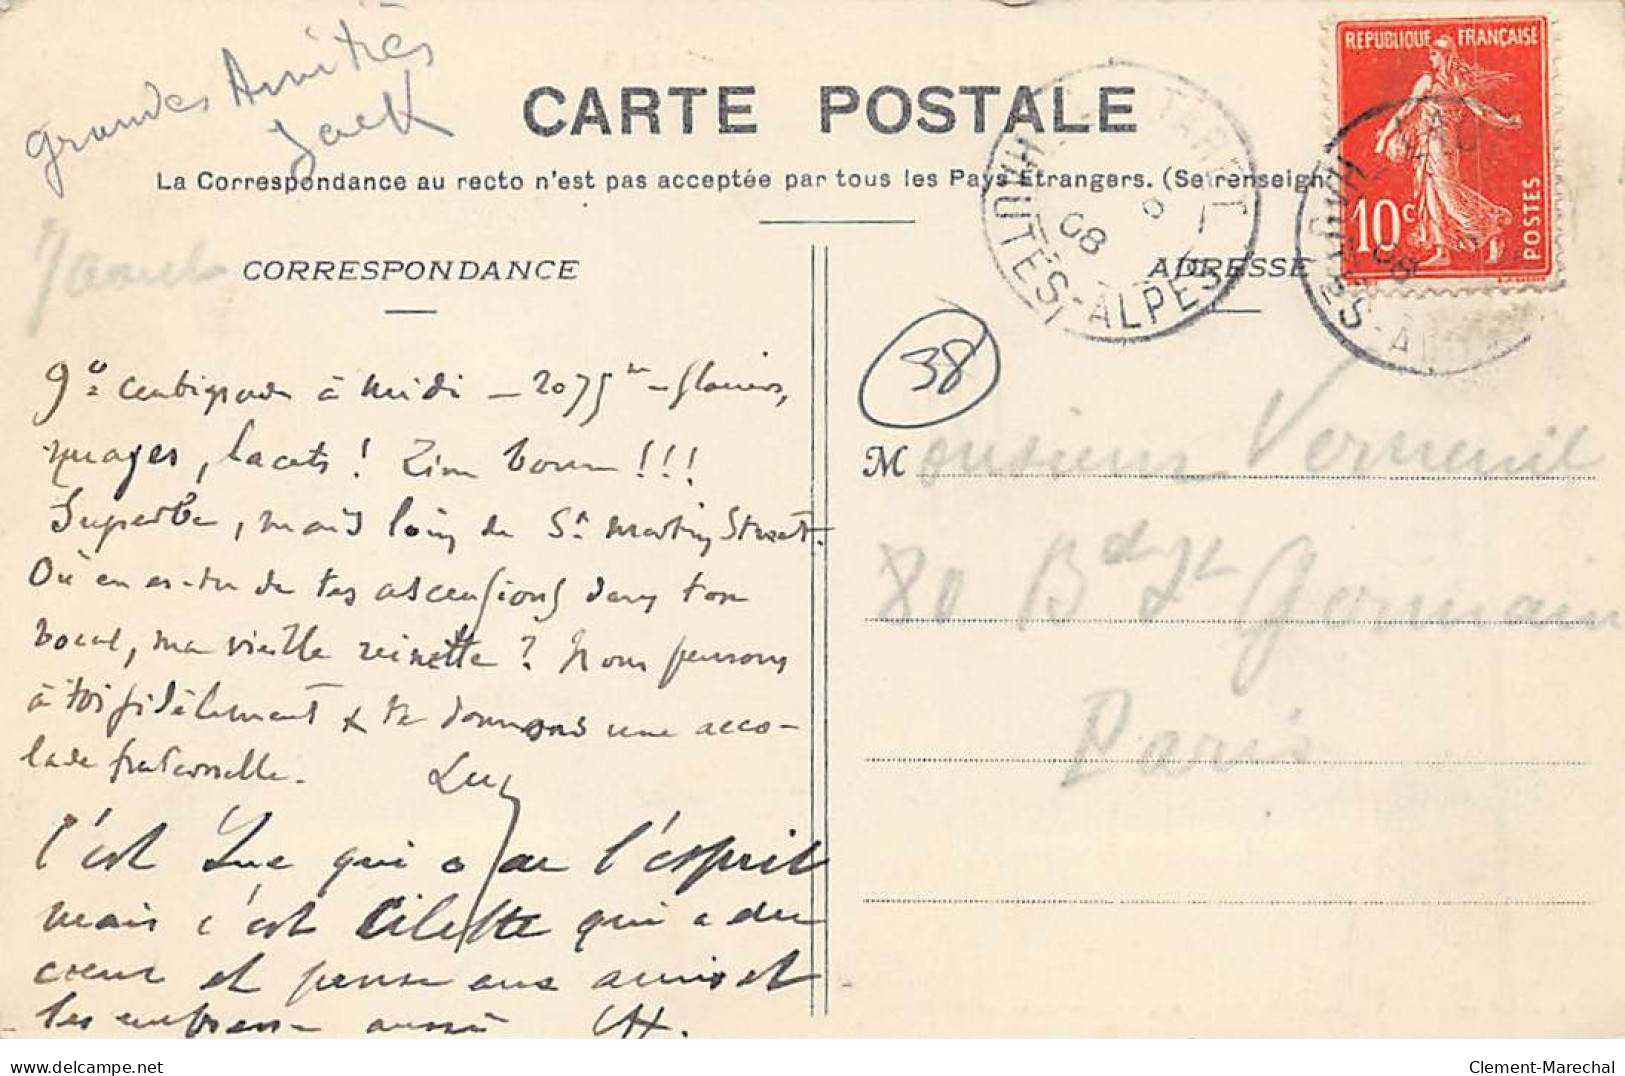 Grandes Amitiés
Jack
CARTE POSTALE
La Correspondance au recto n'est pas acceptée par tous les Pays Etrangers. (Se renseign
REPUBLIQUE FRANÇAISE
10 c
POSTES
HAUTES-ALPES
08
CORRESPONDANCE
ADRESSE
38
9° centigrade à midi - 2075 m - glaciers,
nuages, lacets ! Zim boum !!!
Superbe, mais loin de St Martin Street.
Où en es-tu de tes ascensions dans ton
bocal, ma vieille reinette ? Nous pensons
à toi fidèlement & te donnons une acco-
lade fraternelle.
Luc
C'est Luc qui a de l'esprit
mais c'est Cilette qui a du
cœur et pense aux amis et
les embrasse aussi
Monsieur Verneuil
80 Bd St Germain
Paris
delcampe.net
Clement-Marechal